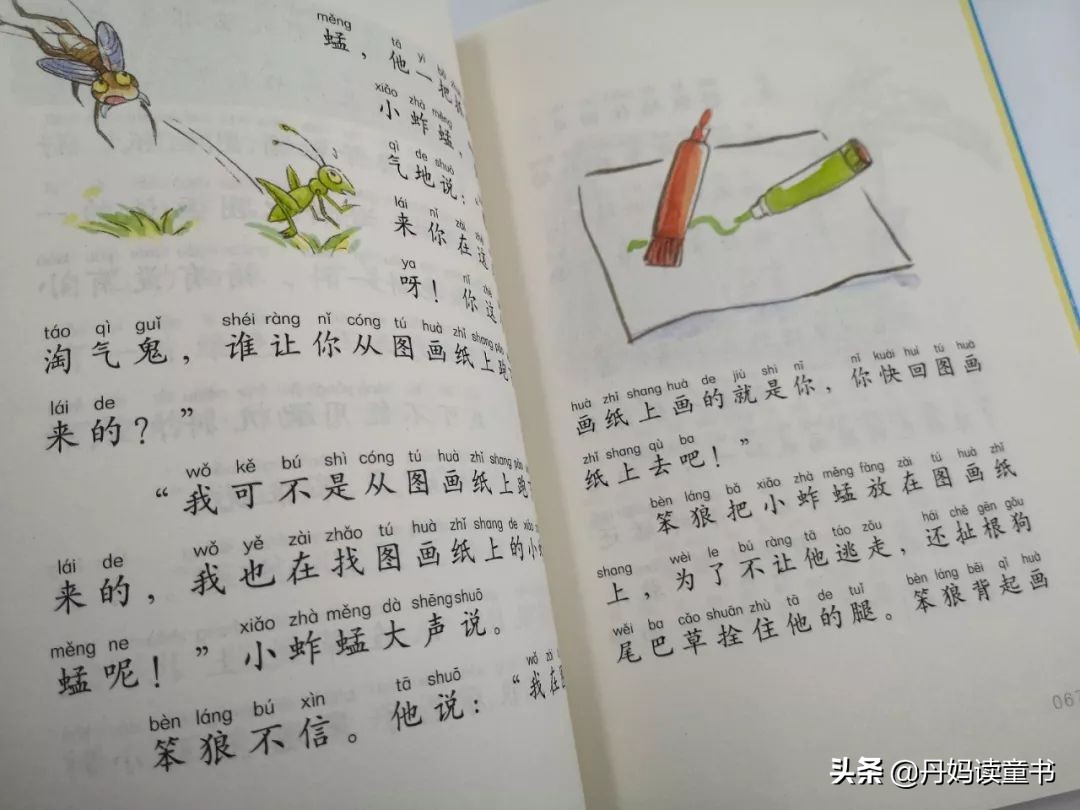 měng tā yì
蜢，他一把
xiǎo zhà měng
小蚱蜢，
qì de shuō
气地说：“
lái nǐ zài zhè
来你在这
ya nǐ
呀！你这
táo qì guǐ shéi ràng nǐ cóng tú huà zhǐ shang pǎo
淘气鬼，谁让你从图画纸上跑
lái de
来的？”
wǒ kě bú shì cóng tú huà zhǐ shang pǎo
“我可不是从图画纸上跑
lái de wǒ yě zài zhǎo tú huà zhǐ shang de xiǎo
来的，我也在找图画纸上的小
měng ne xiǎo zhà měng dà shēng shuō
蜢呢！”小蚱蜢大声说。
bèn láng bú xìn tā shuō wǒ zài
笨狼不信。他说：“我在
huà zhǐ shang huà de jiù shì nǐ nǐ kuài huí tú huà
画纸上画的就是你，你快回图画
zhǐ shang qù ba
纸上去吧！”
bèn láng bǎ xiǎo zhà měng fàng zài tú huà zhǐ
笨狼把小蚱蜢放在图画纸
shang wèi le bú ràng tā táo zǒu hái chě gēn gǒu
上，为了不让他逃走，还扯根狗
wěi ba cǎo shuān zhù tā de tuǐ bèn láng bēi qǐ huà
尾巴草拴住他的腿。笨狼背起画
067
头条 @丹妈读童书